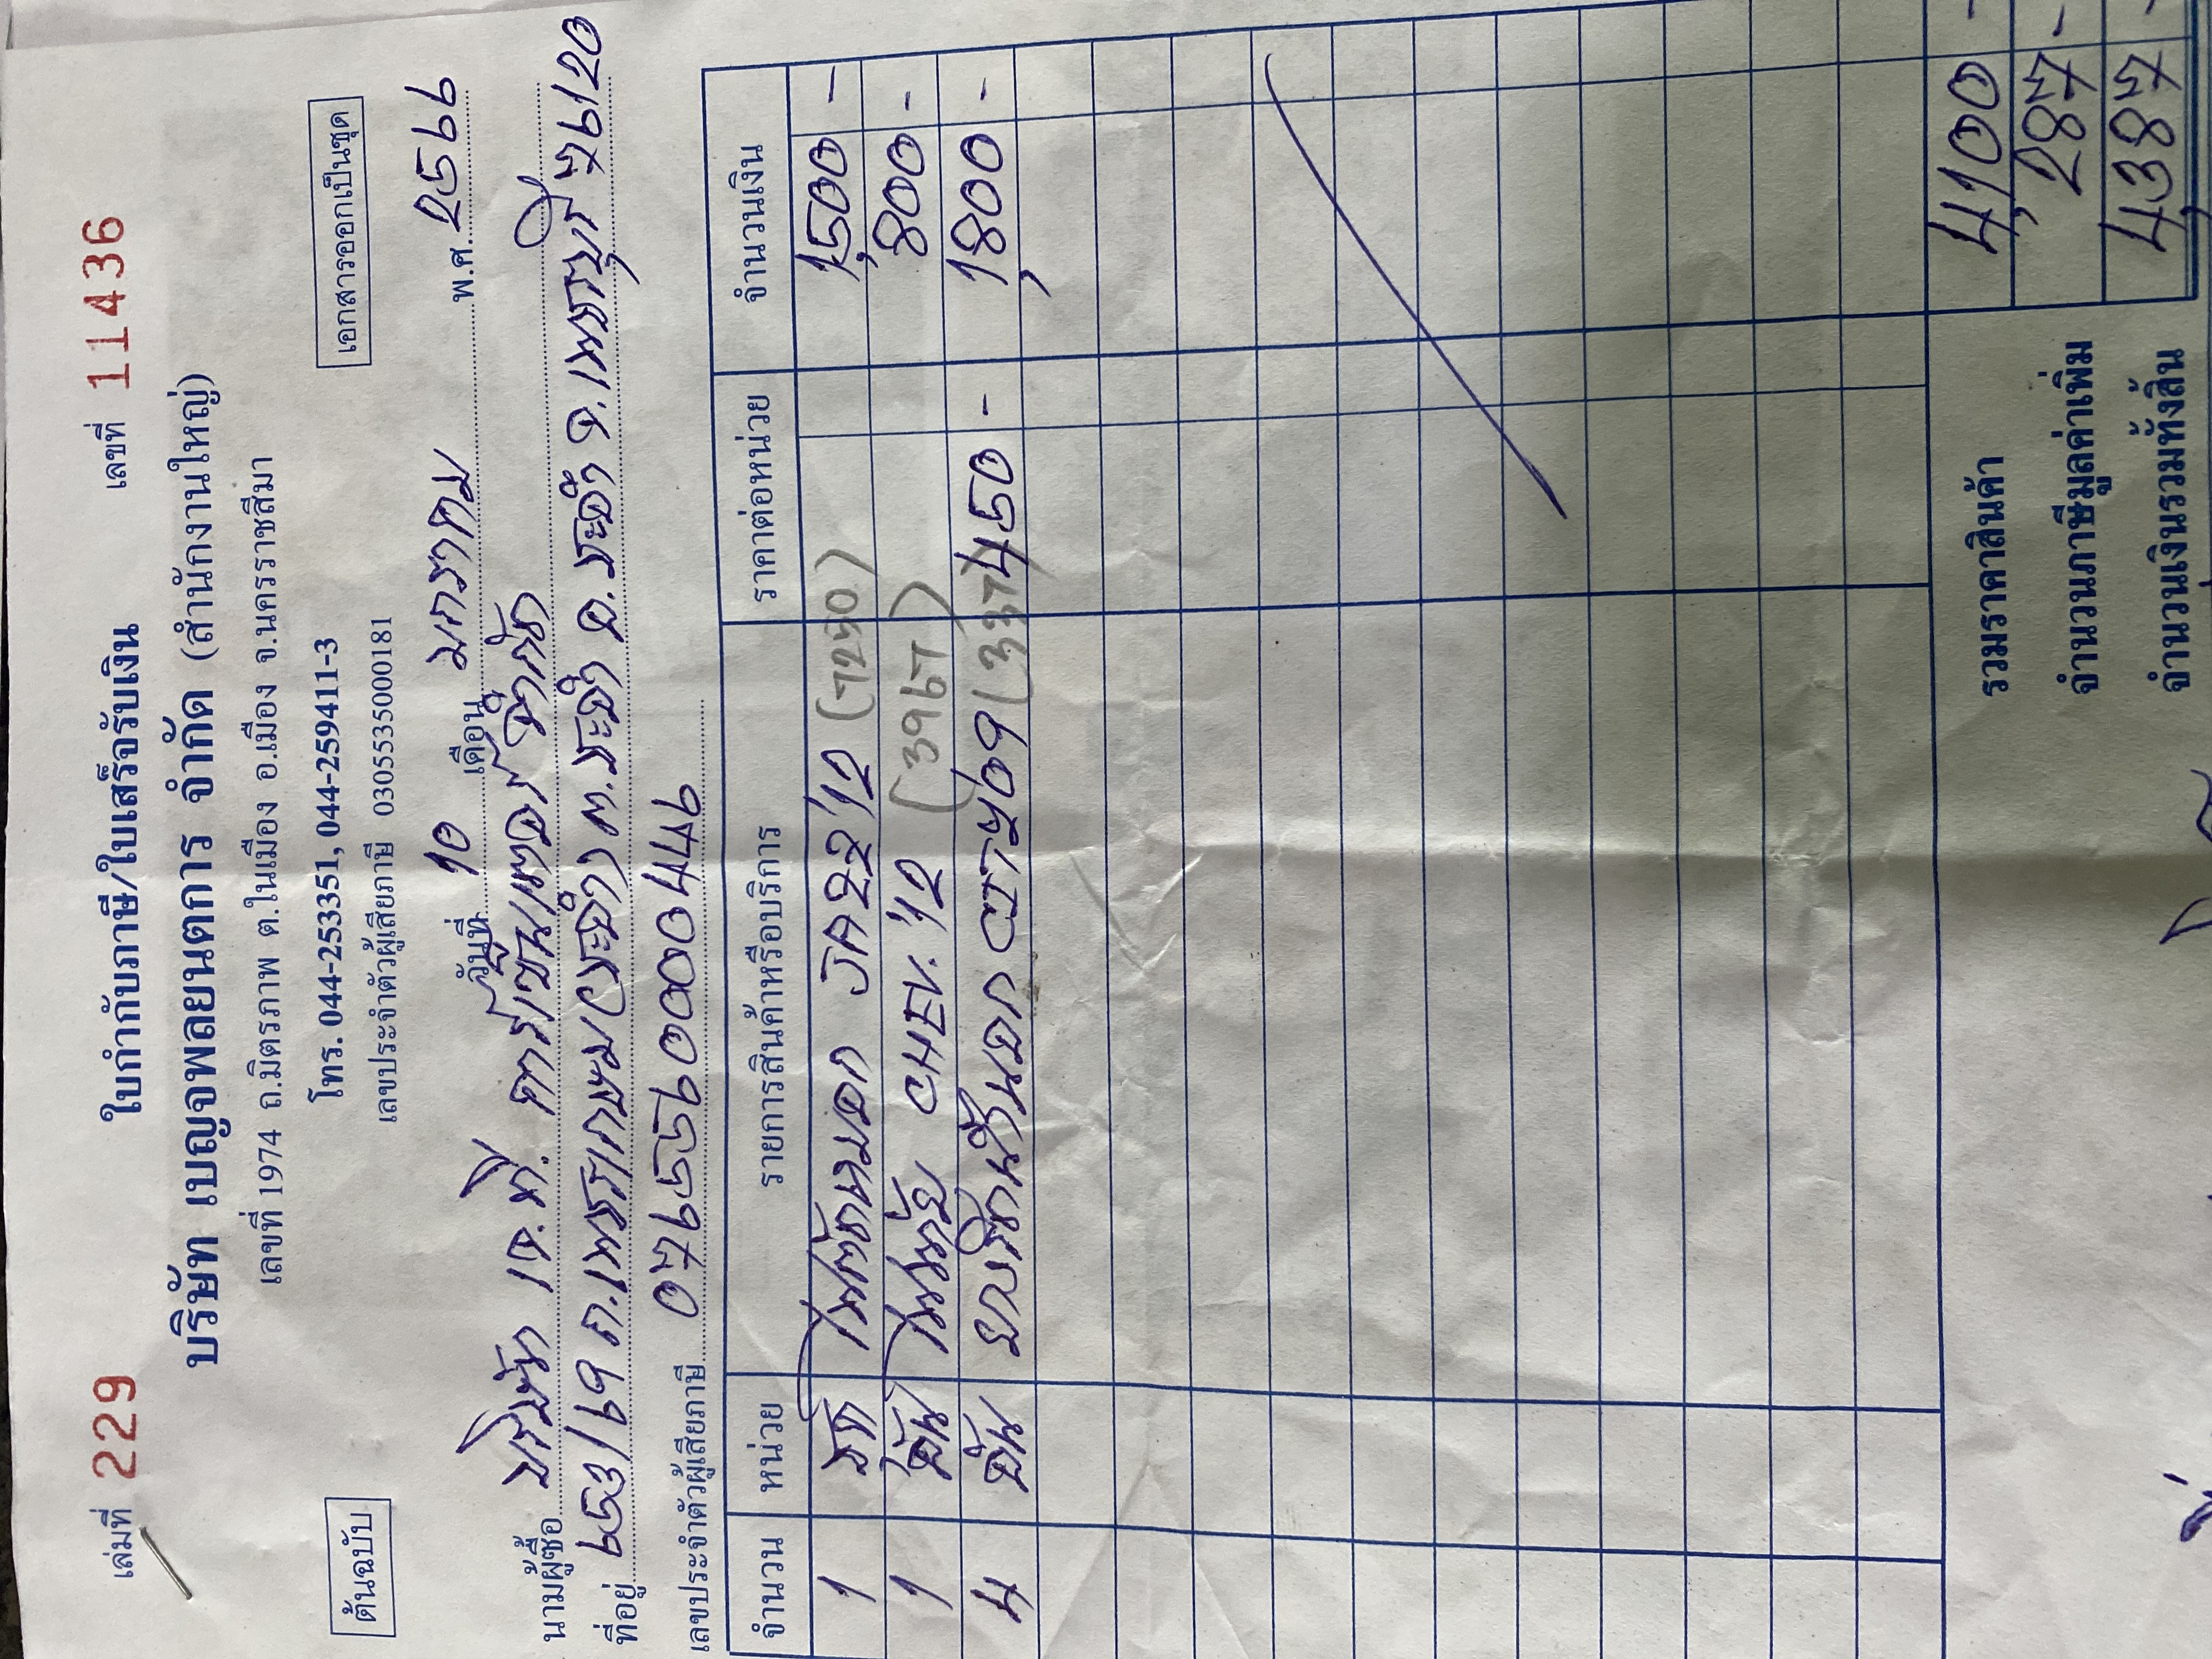 เล่มที่ 229 ใบกำกับภาษี/ใบเสร็จรับเงิน เลขที่ 11436
บริษัท เบญจพลยนตการ จำกัด (สำนักงานใหญ่)
เลขที่ 1974 ถ.มิตรภาพ ต.ในเมือง อ.เมือง จ.นครราชสีมา
ต้นฉบับ โทร. 044-253351, 044-259411-3 เอกสารออกเป็นชุด
เลขประจำตัวผู้เสียภาษี 0305535000181
วันที่ 10 เดือน มกราคม พ.ศ. 2566
นามผู้ซื้อ จำกัด
ที่อยู่ 653/69 ถ.เพชรเกษม ต.ชะอำ อ.ชะอำ จ.เพชรบุรี 76120
เลขประจำตัวผู้เสียภาษี
จำนวน หน่วย รายการสินค้าหรือบริการ ราคาต่อหน่วย จำนวนเงิน
1 JAZZ '12 (7250) 1,500 -
1 อัน CHEV. '12 (3967) 800 -
4 อัน (337) 450 - 1,800 -
รวมราคาสินค้า 4,100 -
จำนวนภาษีมูลค่าเพิ่ม 287 -
จำนวนเงินรวมทั้งสิ้น 4,387 -